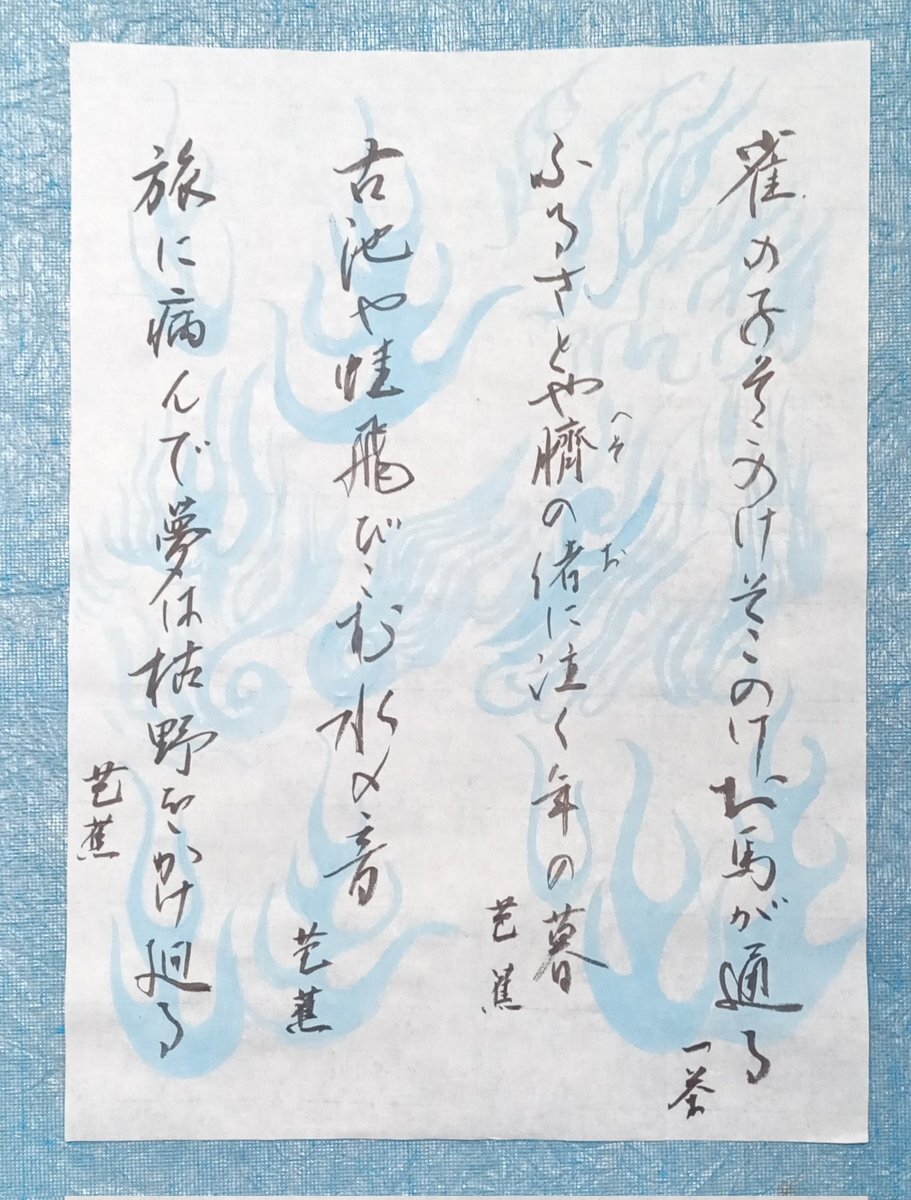 雀の子そこのけそこのけお馬が通る
一茶
ふるさとや臍の緒に泣く年の暮
へそ
お
芭蕉
古池や蛙飛びこむ水の音
芭蕉
旅に病んで夢は枯野をかけ廻る
芭蕉